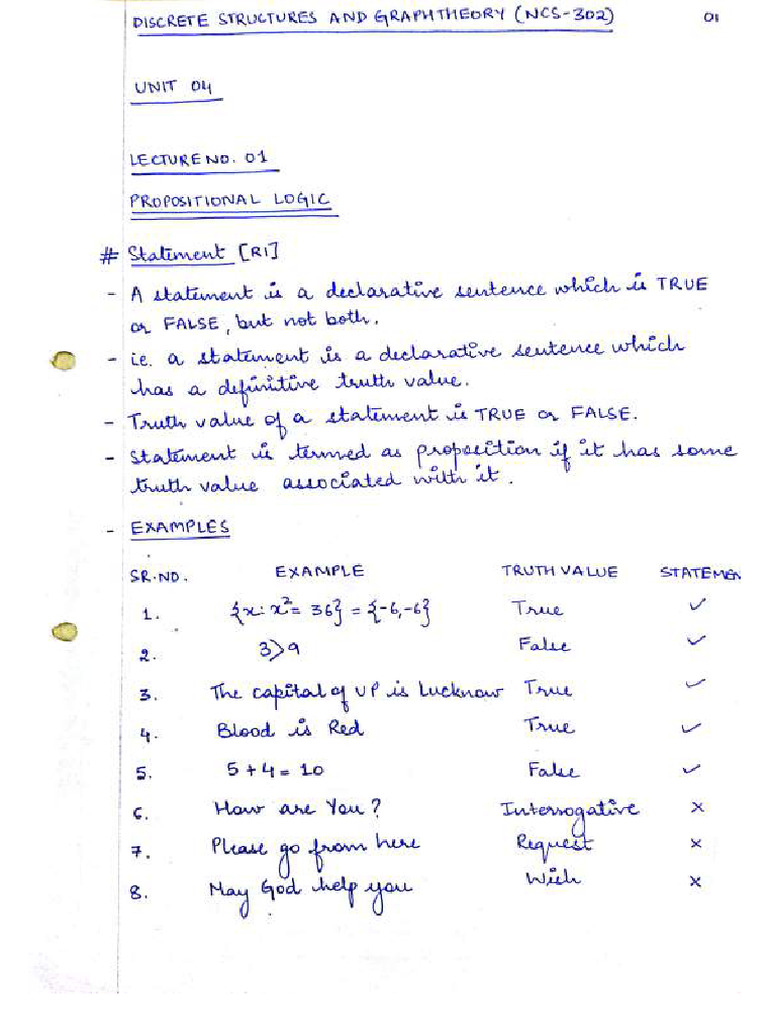 DISCRETE STRUCTURES AND GRAPHTHEORY (NCS-302) 01
UNIT 04
LECTURE NO. 01
PROPOSITIONAL LOGIC
# Statement [R1]
- A statement is a declarative sentence which is TRUE
or FALSE, but not both.
- ie. a statement is a declarative sentence which
has a definitive truth value.
- Truth value of a statement is TRUE or FALSE.
- Statement is termed as proposition if it has some
truth value associated with it.
- EXAMPLES
SR.NO. EXAMPLE TRUTH VALUE STATEMEN
1. {x: x²= 36} = {-6,-6} True ✓
2. 3>9 False ✓
3. The capital of UP is Lucknow True ✓
4. Blood is Red True ✓
5. 5+4=10 False ✓
6. How are You? Interrogative ×
7. Please go from here Request ×
8. May God help you Wish ×